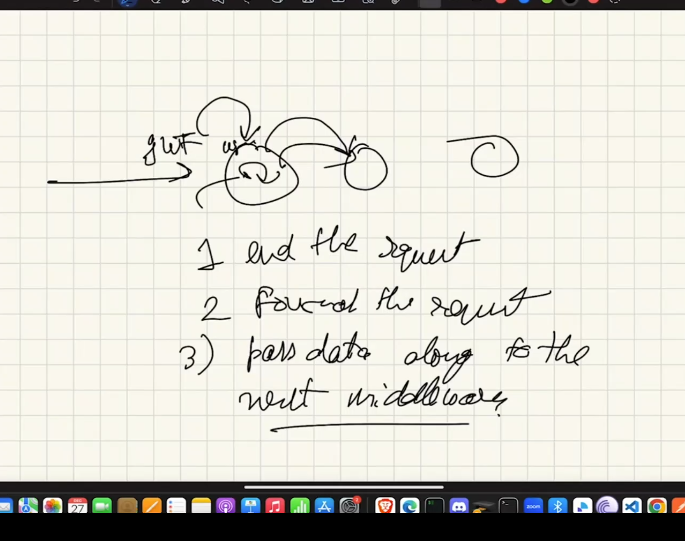 jwt
1 end the request
2 Forward the request
3) pass data along to the
next middleware
DEC
27
zoom